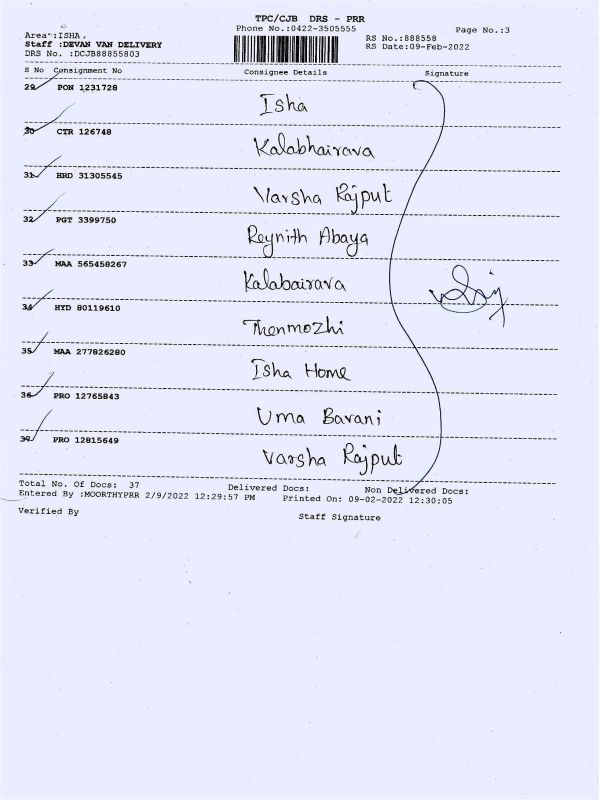 TPC/CJB DRS - PRR
Phone No.:0422-3505555
Page No.:3
Area :ISHA,
RS No.:888558
Staff :DEVAN VAN DELIVERY
RS Date:09-Feb-2022
DRS No. :DCJB88855803
S No Consignment No Consignee Details Signature
29 PON 1231728
Isha
30 CTR 126748
Kalabhairava
31 HRD 31305545
Varsha Rajput
32 PGT 3399750
Reynith Abaya
33 MAA 565458267
Kalabairava
34 HYD 80119610
Thenmozhi
35 MAA 277826280
Isha Home
36 PRO 12765843
Uma Barani
37 PRO 12815649
Varsha Rajput
Total No. Of Docs: 37 Delivered Docs: Non Delivered Docs:
Entered By :MOORTHYPRR 2/9/2022 12:29:57 PM Printed On: 09-02-2022 12:30:05
Verified By Staff Signature